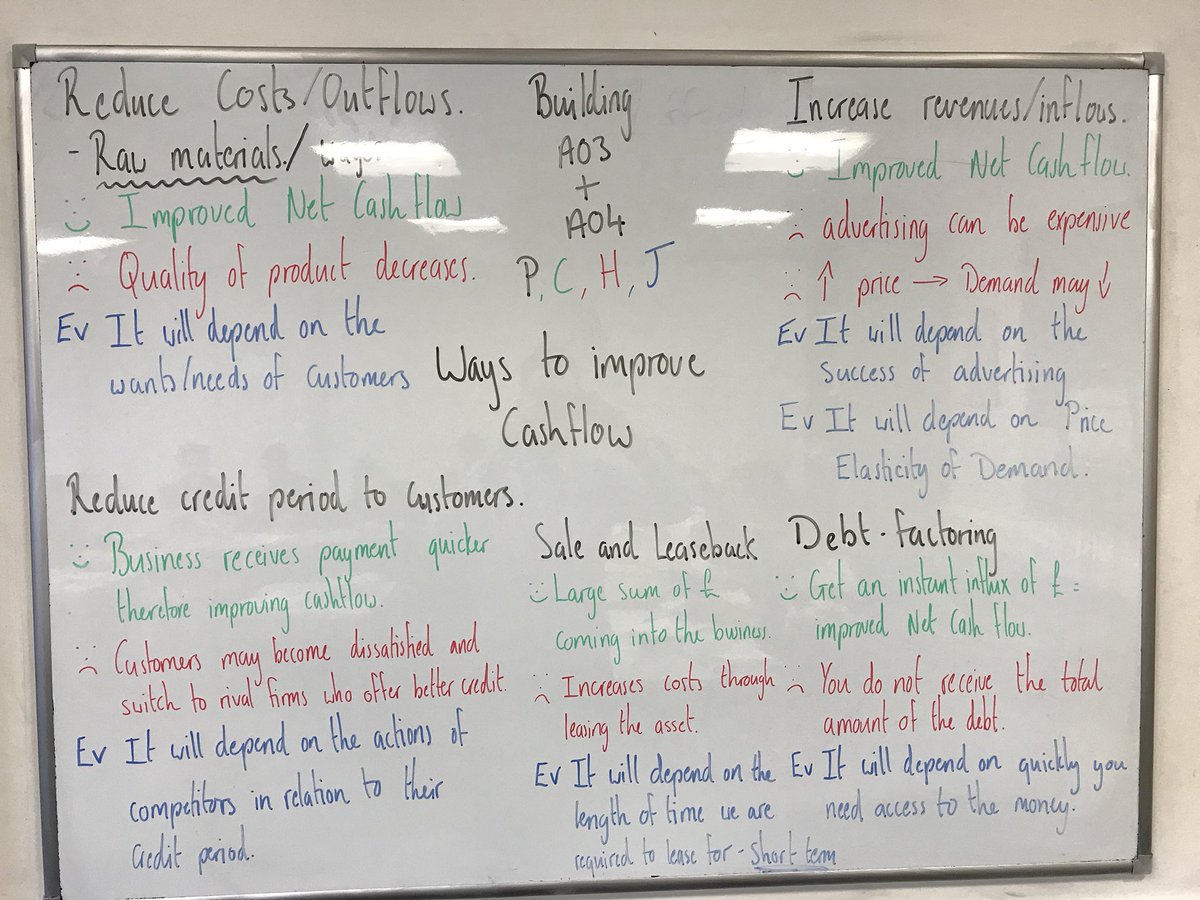 Reduce Costs/Outflows.
- Raw materials./
Improved Net Cashflow
Quality of product decreases.
Ev It will depend on the
wants/needs of customers
Building
AO3
+
AO4
P, C, H, J
Ways to improve
Cashflow
Increase revenues/inflows.
Improved Net Cashflow.
advertising can be expensive
↑ price → Demand may ↓
Ev It will depend on the
success of advertising
Ev It will depend on Price
Elasticity of Demand.
Reduce credit period to customers.
Business receives payment quicker
therefore improving cashflow.
Customers may become dissatisfied and
switch to rival firms who offer better credit.
Ev It will depend on the actions of
competitors in relation to their
credit period.
Sale and Leaseback
Large sum of £
coming into the business.
Increases costs through
leasing the asset.
Ev It will depend on the
length of time we are
required to lease for - short term
Debt-factoring
Get an instant influx of £ =
improved Net Cash flow.
You do not receive the total
amount of the debt.
Ev It will depend on quickly you
need access to the money.